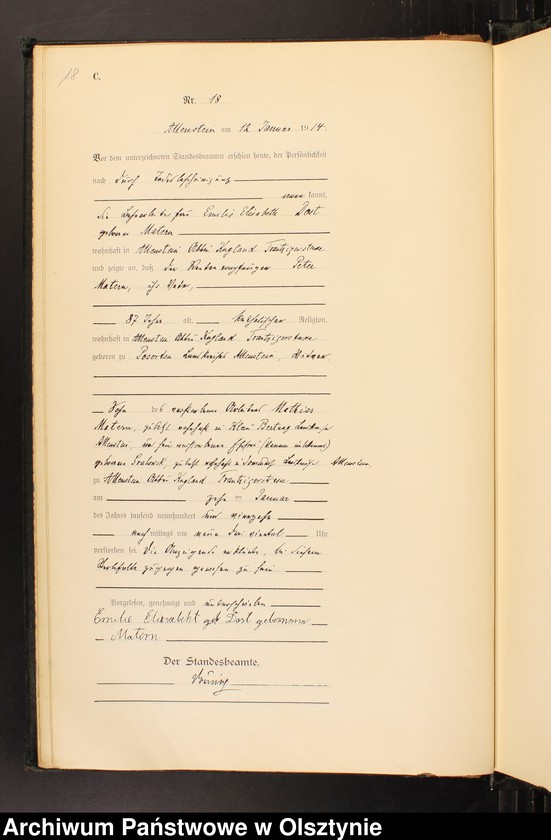 18
C.
Nr. 18
Allenstein am 12 Januar 1914.
Vor dem unterzeichneten Standesbeamten erschien heute, der Persönlichkeit
nach durch
kannt,
die frau Emilie Elisabeth Dost
geborene Matern
wohnhaft in Allenstein Abbau
und zeigte an, daß der Rentenempfänger Peter
Matern, ihr Vater,
87 Jahre alt, katholischer Religion,
wohnhaft in Allenstein Abbau
geboren zu Posorten Landkreises Allenstein, Witwer
Sohn des verstorbenen Mathies
Matern, zuletzt wohnhaft in Klein Bertung
Allenstein, und seiner verstorbenen Ehefrau
geborene zuletzt wohnhaft in Allenstein
zu Allenstein Abbau
am zehn ten Januar
des Jahres tausend neunhundert und vierzehn
nach mittags um neun drei viertel Uhr
verstorben sei. Die Anzeigende erklärte, bei diesem
Sterbefalle zugegen gewesen zu sein
Vorgelesen, genehmigt und unterschrieben
Emilie Elisabeht Dost geborenne
Matern
Der Standesbeamte.
Archiwum Państwowe w Olsztynie